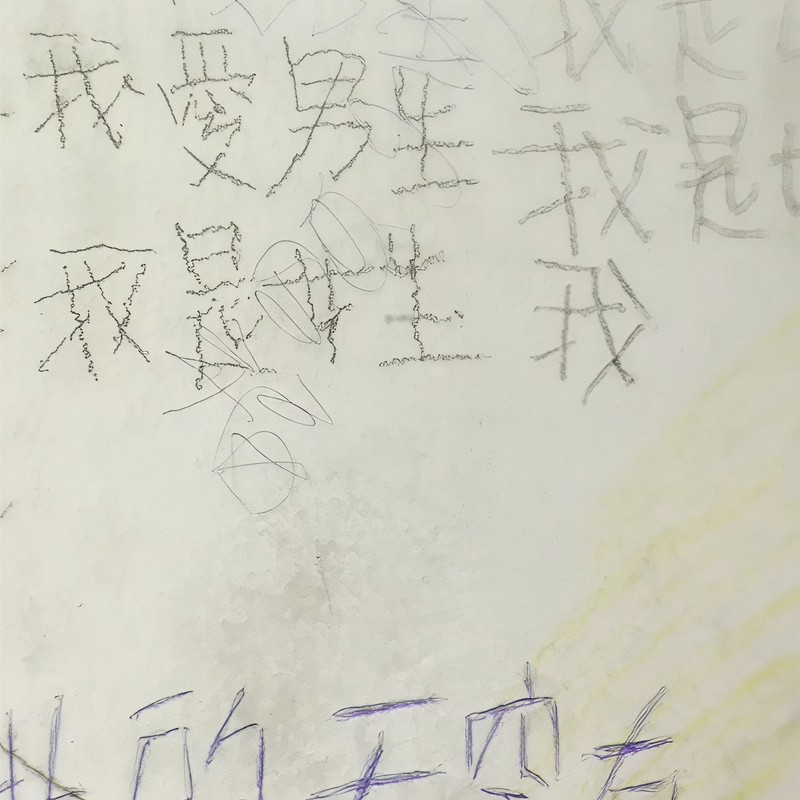 我是
我愛男生
我是
我是女生
我
的天空有